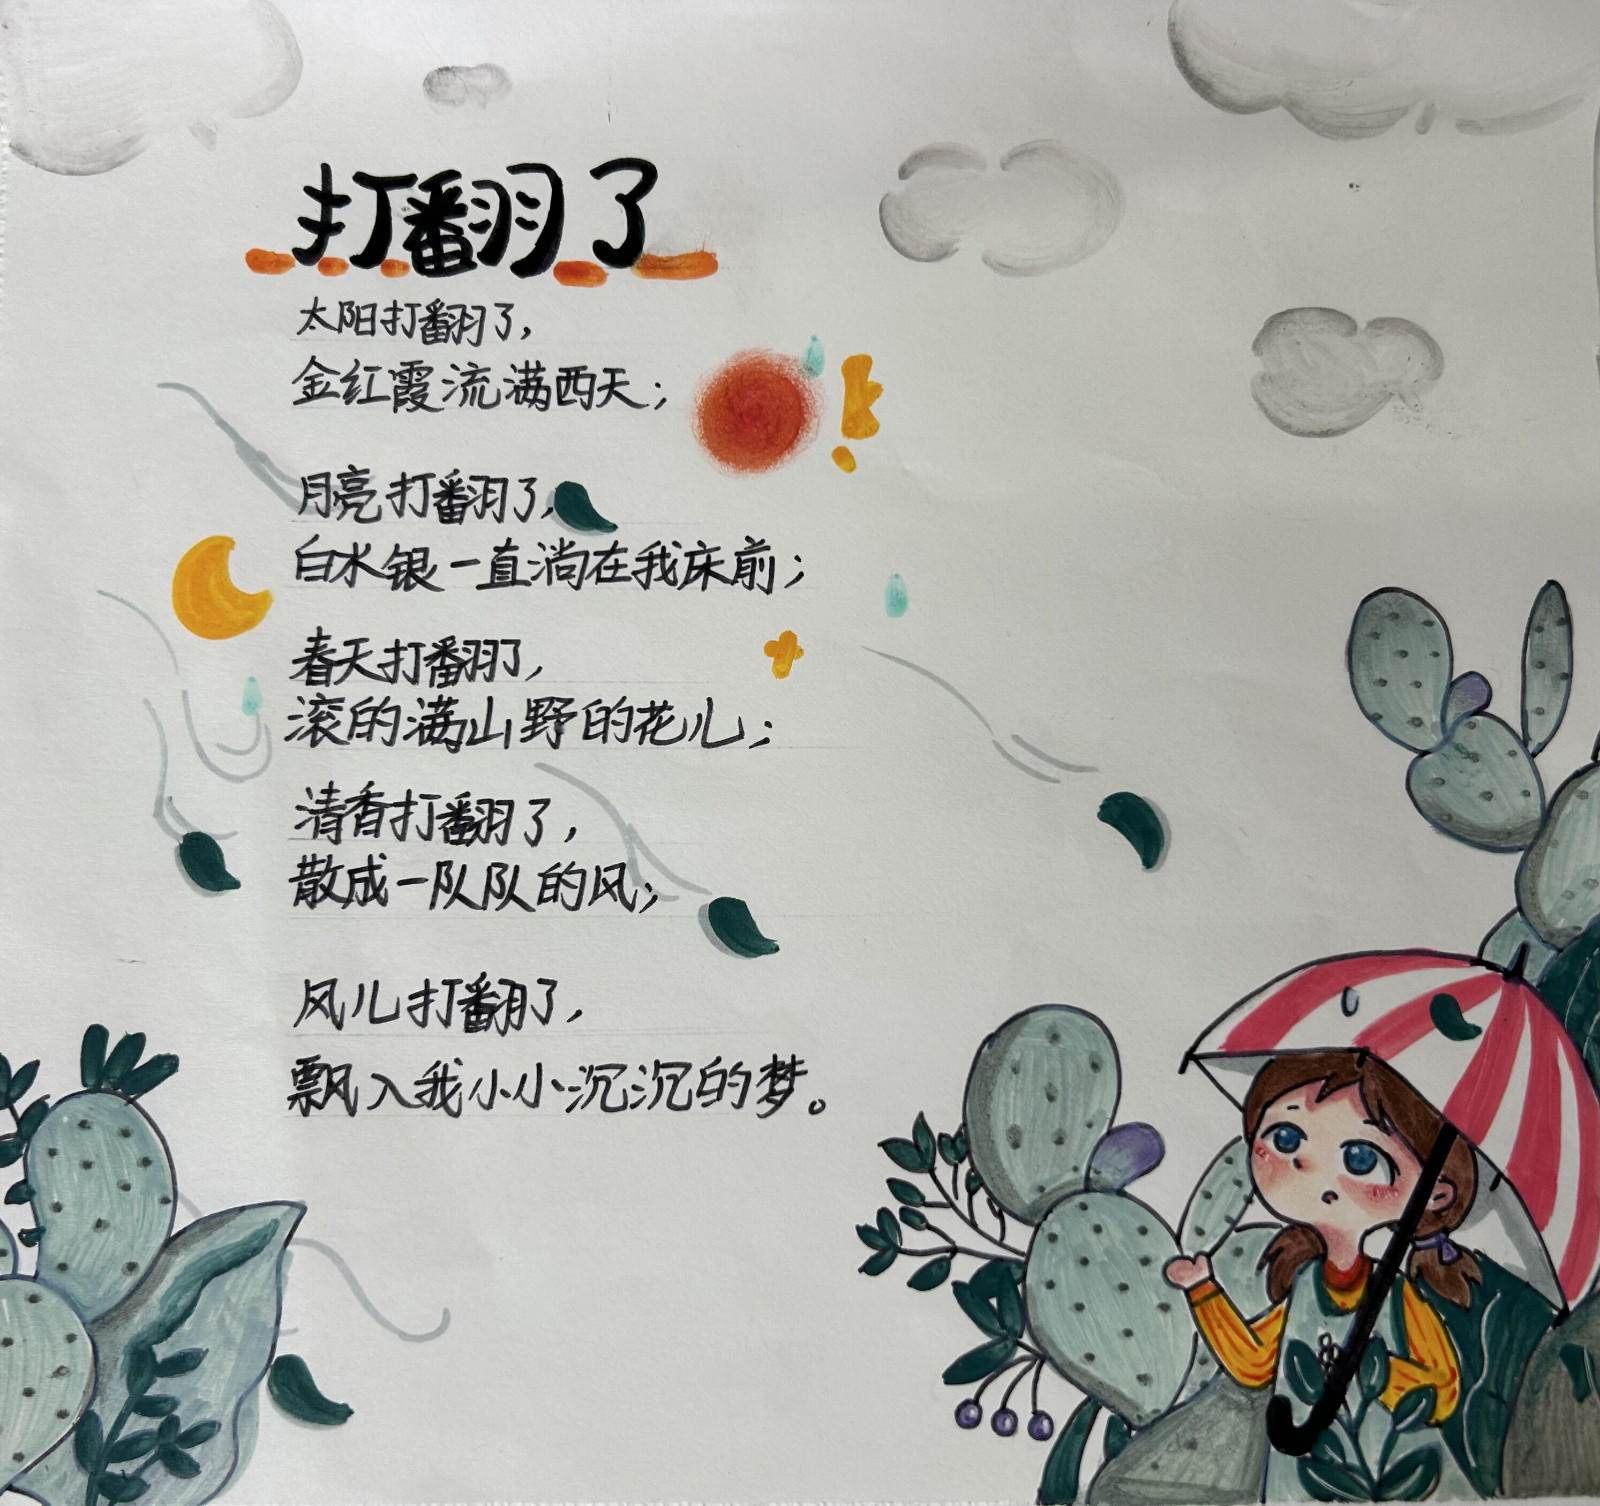 打翻了
太阳打翻了,
金红霞流满西天;
月亮打翻了,
白水银一直淌在我床前;
春天打翻了,
滚的满山野的花儿;
清香打翻了,
散成一队队的风;
风儿打翻了,
飘入我小小沉沉的梦。